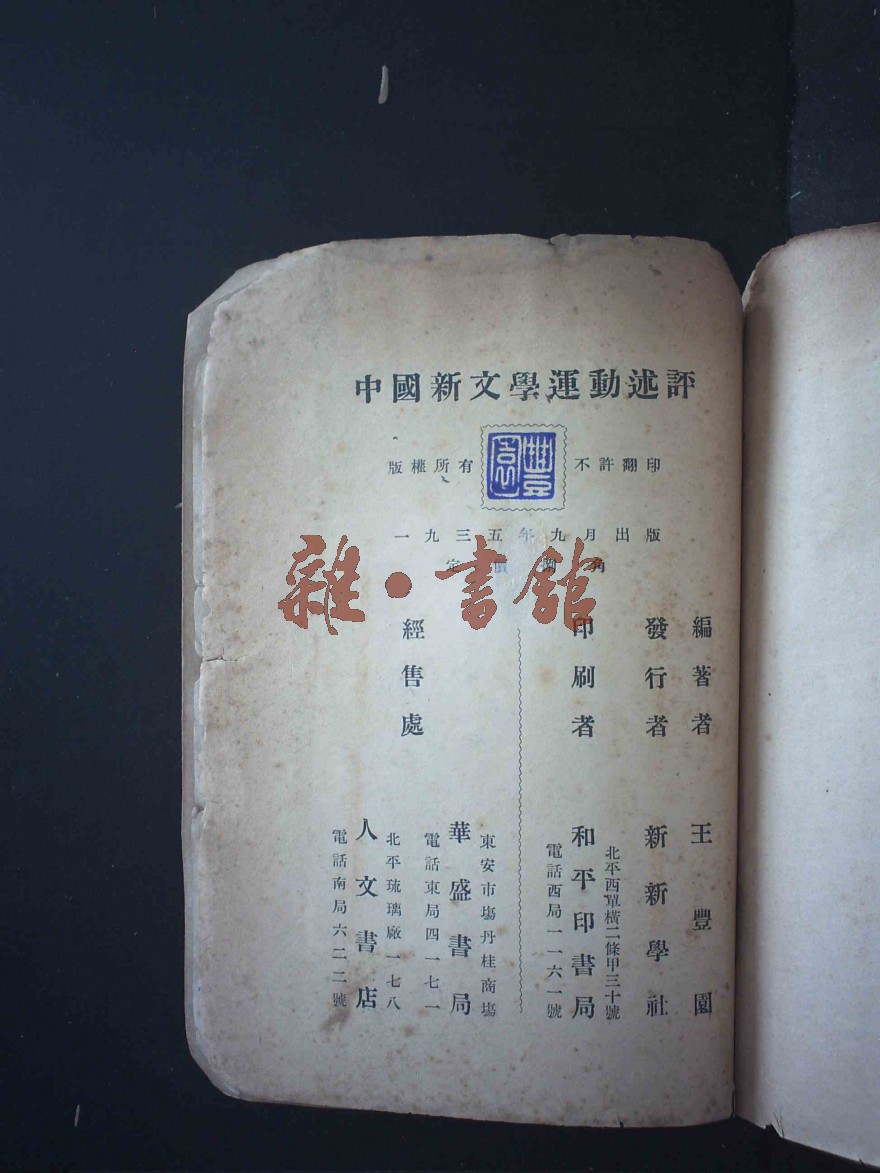 中國新文學運動述評
版權所有
豐園
不許翻印
一九三五年九月出版
定價角
雜·書館
編著者 王豐園
發行者 新新學社
北平西單橫二條甲三十號
印刷者 和平印書局
電話西局一一六一號
經售處
東安市塲丹桂商塲
華盛書局
電話東局四一七一
北平琉璃廠一七八
人文書店
電話南局六二二號